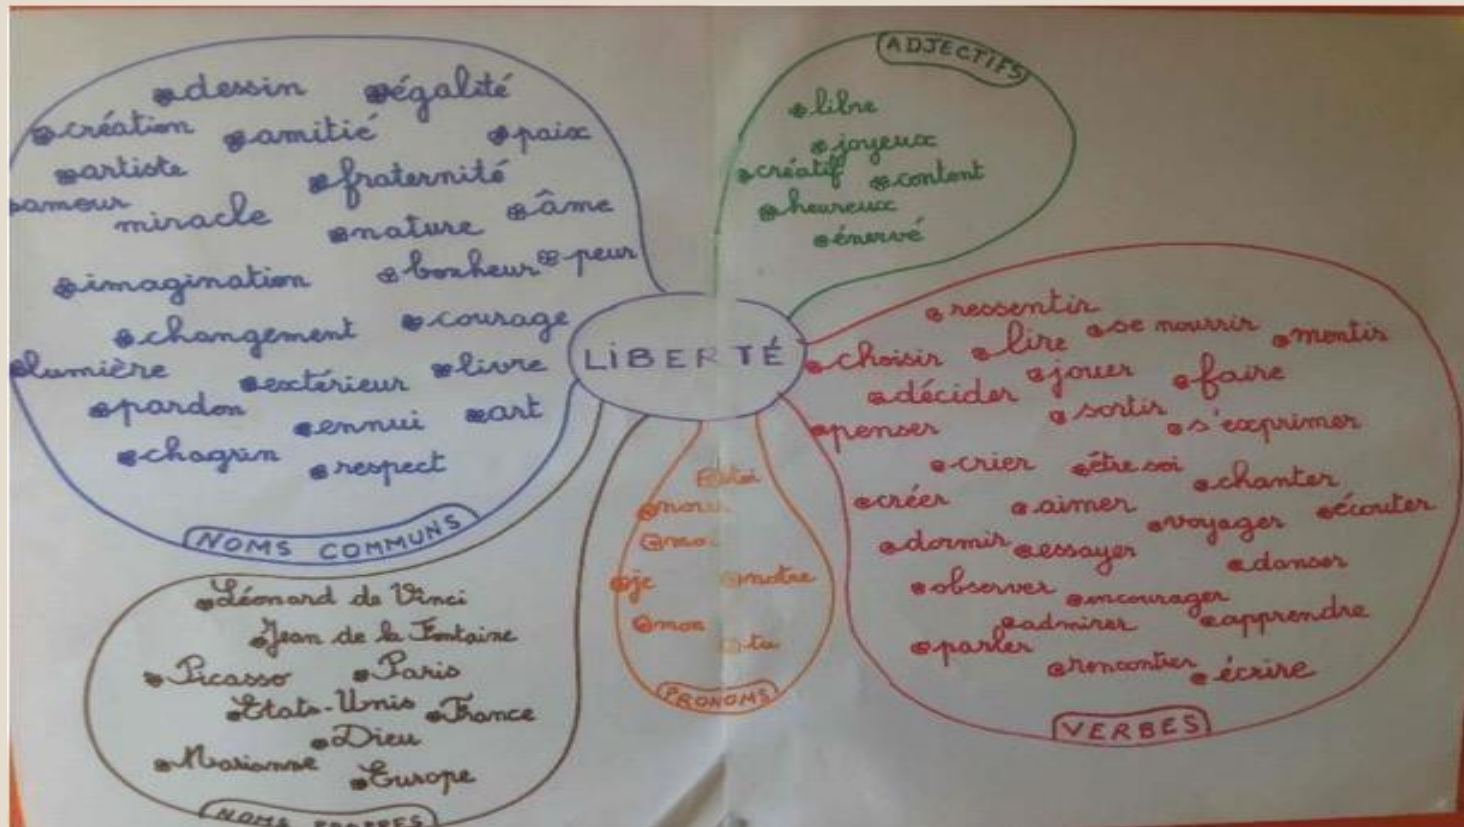 LIBERTÉ
NOMS COMMUNS
dessin égalité
création amitié paix
artiste fraternité
amour miracle nature âme
imagination bonheur peur
changement courage
lumière extérieur livre
pardon ennui art
chagrin respect
ADJECTIFS
libre
joyeux
créatif content
heureux
énervé
VERBES
ressentir
choisir lire se nourrir mentir
décider jouer faire
penser sortir s'exprimer
crier être soi chanter
créer aimer voyager écouter
dormir essayer danser
observer encourager
admirer apprendre
parler rencontrer écrire
PRONOMS
toi
je notre
mon
tu
NOMS PROPRES
Léonard de Vinci
Jean de la Fontaine
Picasso Paris
Etats-Unis France
Dieu
Marianne
Europe